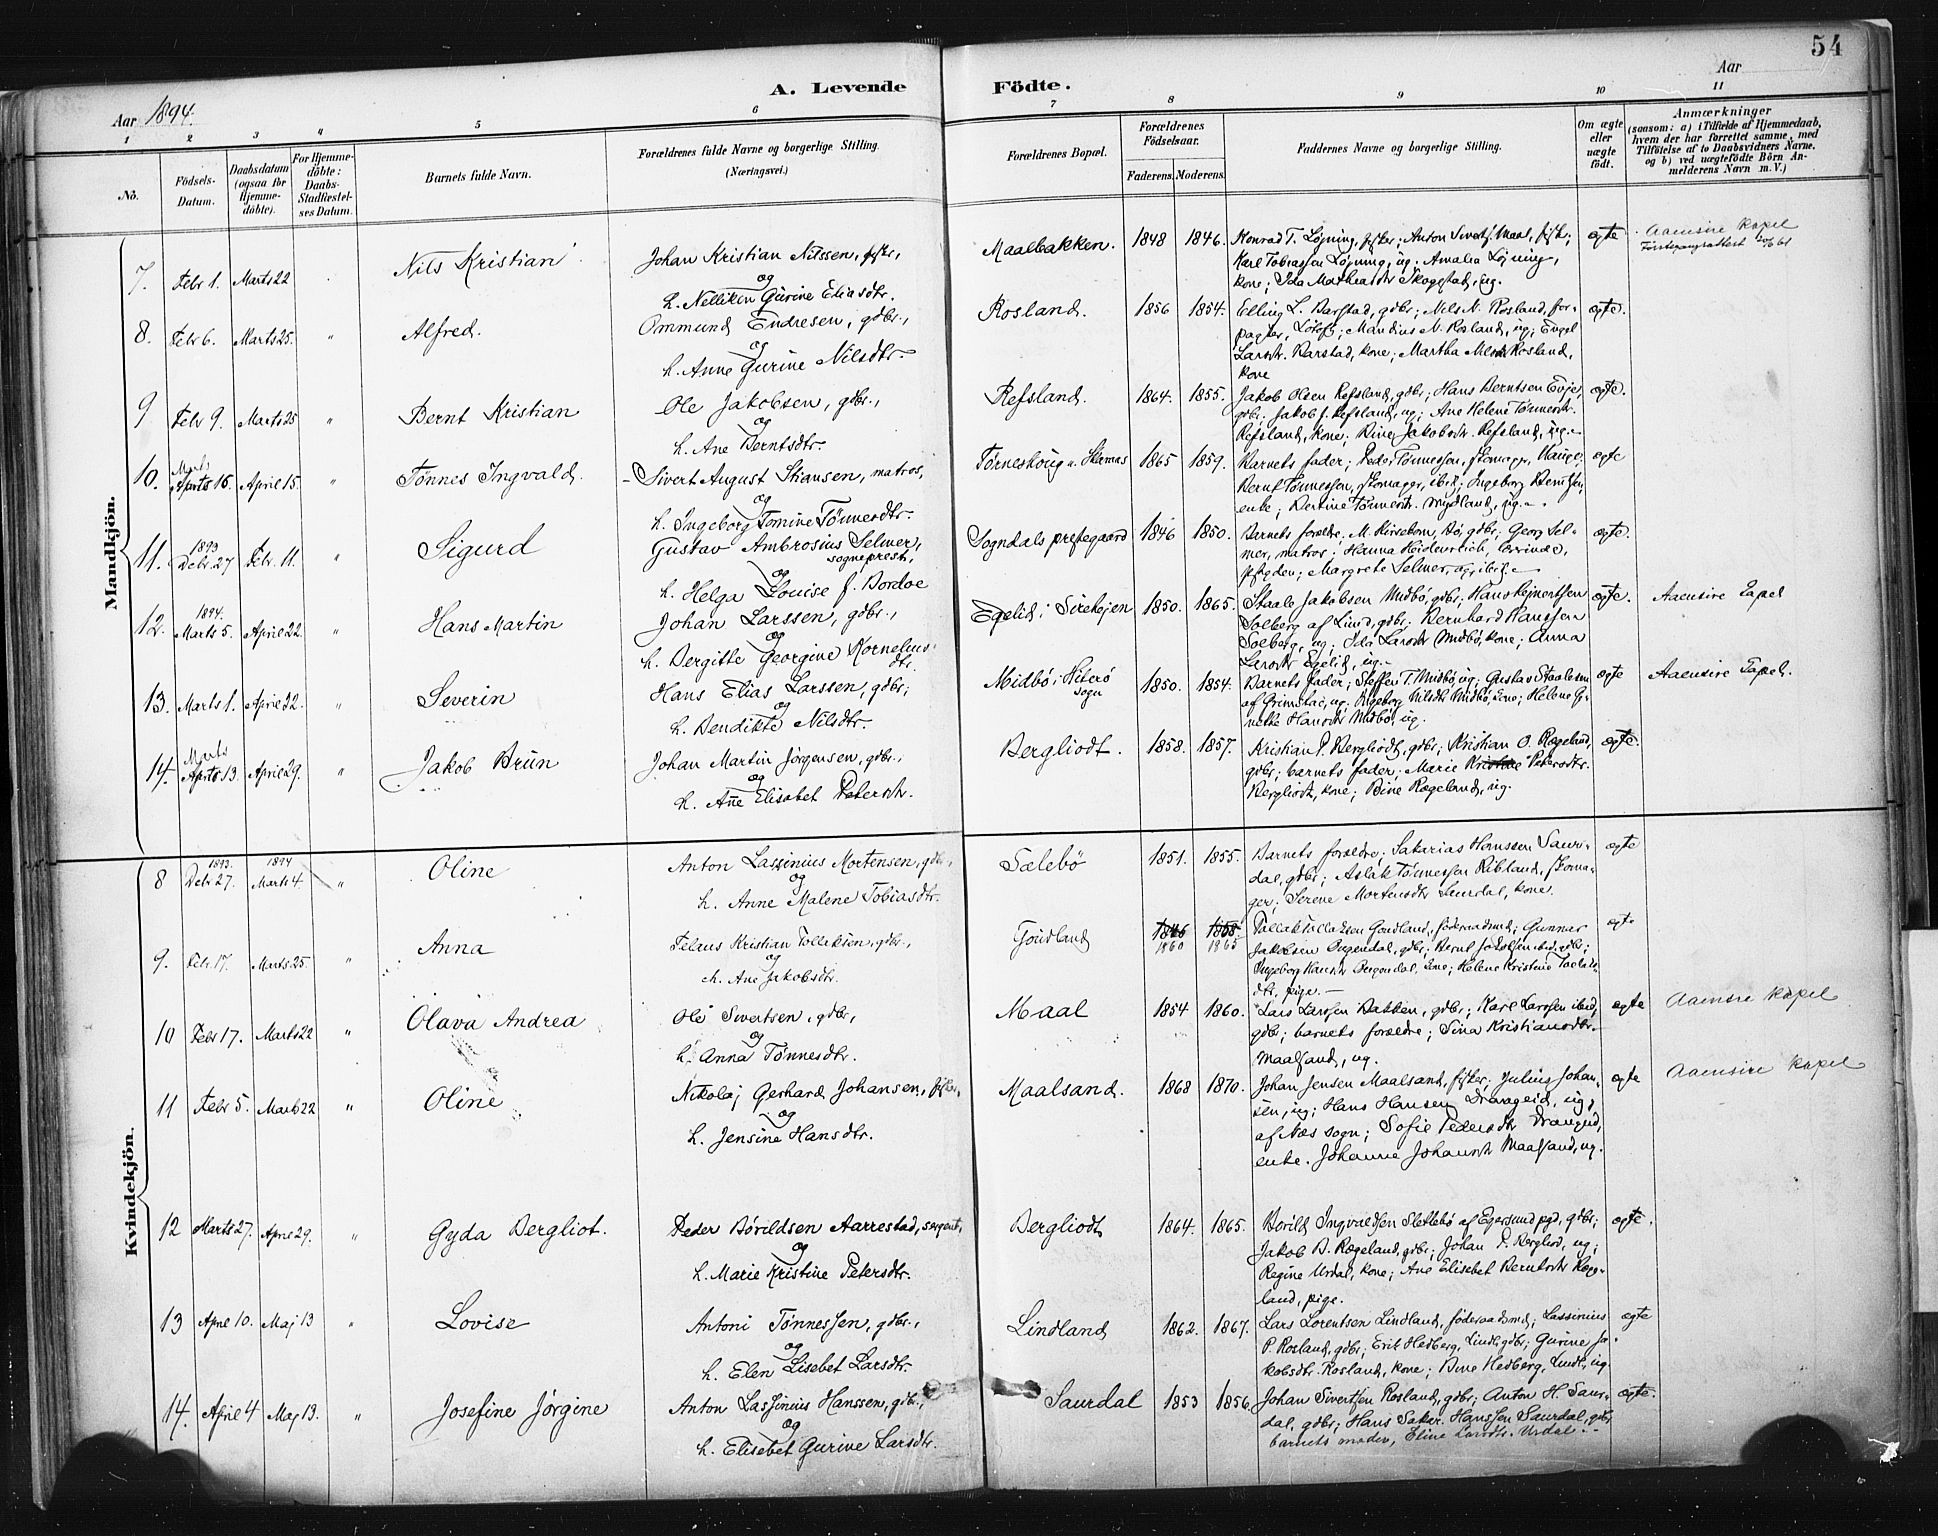 54
A. Levende Födte.
Aar 1894.
Aar
1 2 3 4 5 6 7 8 9 10 11
No.
Födsels-Datum.
Daabsdatum (ogsaa för Hjemme-döbte).
For Hjemme-döbte: Daabs-Stadfæstel-ses Datum.
Barnets fulde Navn.
Forældrenes fulde Navne og borgerlige Stilling.
(Næringsvei.)
Forældrenes Bopæl.
Forældrenes Födselsaar.
Faderens. Moderens.
Faddernes Navne og borgerlige Stilling.
Om ægte eller uægte födt.
Anmærkninger
(saasom: a) i Tilfælde af Hjemmedaab, hvem der har forrettet samme, med Tilföielse af to Daabsvidners Navne, og b) ved uægtefödte Börn An-melderens Navn m. V.)
Mandkjön.
7. Febr 1. Marts 22 Nils Kristian Johan Kristian Nilssen, fisker,
og
h. Nellikin Gurine Eliasdtr.
Maalbakken. 1848 1846. Konrad T. Løining, fisker; Anton Siverts. Maal, fisk.;
Karl Tobiassen Løining, ug. Amalia Løining,
kone; Ida Matheasdtr Skogstad, ug.
ægte Aaensire kapel
8. Febr 6. Marts 25. " Alfred. Ommund Endresen, gdbr.,
og
h. Anne Gurine Nilsdtr.
Rosland. 1856 1854. Elling L. Barstad, gdbr; Nils N. Rosland, for-
pagter, ; Mandius N. Rosland, ug; Engel
Larsdtr. Barstad, kone; Martha Nilsdtr Rosland,
kone
ægte.
9 Febr 9. Marts 25 " Bernt Kristian Ole Jakobsen, gdbr.,
og
h. Ane Berntsdtr.
Refsland. 1864. 1855. Jakob Olsen Refsland, gdbr; Hans Berntsen Evje,
gdbr. Jakob J. Refsland, ug; Ane Helene Tønnesdtr.
Refsland, kone; Bine Jakobsdtr. Refsland, ug.
ægte.
10. Marts 16. April 15. " Tønnes Ingvald. Sivert August Stiansen, matros,
og
h. Ingeborg Tomine Tønnesdtr.
1865 1859. Barnets fader; Peder Tønnessen, skomager, Hauge;
Bernt Tønnessen, skomager, ibid; Ingeborg
enke; Bertine Tønnesdtr. Mydland, ug.
ægte
11. 1893 Debr. 27 Febr. 11. " Sigurd Gustav Ambrosius Selmer,
sogneprest,
og
h. Helga Louise f. Bordoe
Sogndals prestegaard 1846 1850. Barnets foreldre. M. Kirsebom, Bø, gdbr; Georg Sel-
mer, matros; Hanna Heidenreich, lærerinde,
; Margrete Selmer, ug, ibid.
ægte.
12. 1894. Marts 5. April 22. " Hans Martin Johan Larssen, gdbr.,
og
h. Bergitte Georgine Kornelius-
dtr.
Egelid i Sirekjen 1850. 1865. Staale Jakobsen Midbø, gdbr; Hans Reinertsen
Solberg af Lund, gdbr; Bernhard Hanssen
Solberg, ug; Ida Larsdtr Midbø, kone; Anna
Larsdtr Egelid, ug.
ægte. Aaensire Capel
13. Marts 1. April 22. " Severin Hans Elias Larssen, gdbr;
og
h. Bendikte Nilsdtr.
Midbø, i Hiterø
sogn
1850. 1854. Barnets fader; Steffen T. Midbø, ug; Gustav Staalesen
af Grimstac, ug; Ingeborg Nilsdtr Midbø, kone; Helene G-
nethe Hansdtr Midbø, ug.
ægte Aaensire Capel.
14. Marts 13. April 29. " Jakob Brun Johan Martin Jørgensen, gdbr.,
og
h. Ane Elisabet Petersdtr.
Bergliodt. 1858. 1857. Kristian P. Bergliodt, gdbr; Kristian O. Rægeland,
gdbr; barnets fader; Marie Petersdtr.
Bergliodt, kone; Bine Rægeland, ug.
ægte.
Kvindekjön.
8 1893. Debr 27. 1894 Marts 4. " Oline Anton Lassinius Mortensen, gdbr,
og
h. Anne Malene Tobiasdtr.
Sælebø 1851. 1855. Barnets forældre; Sakarias Hanssen Saur-
dal, gdbr; Aslak Tønnessen Ribland, skoma-
ger; Serene Mortensdtr Saurdal, kone.
ægte
9. Febr. 17. Marts 25. " Anna Kristian Tolleksen, gdbr.,
og
h. Ane Jakobsdtr.
Goudland 1846 1858 1860 1865. Goudland, føderaadsmd; Gunnar
Jakobsen Bugendal, gdbr;
Ingeborg Hansdtr , kone; Helene Kristine
dtr, pige.
ægt.
10 Febr 17. Marts 22 " Olava Andrea Ole Sivertsen, gdbr,
og
h. Anna Tønnesdtr.
Maal 1854 1860. Lars Larssen Bakken, gdbr; Karl Larssen ibid,
gdbr; barnets forældre; Sina Kristiansdtr.
Maalsand, ug.
ægte Aaensire kapel
11 Febr 5. Marts 22 " Oline Nikolaj Gerhard Johansen, fisker,
og
h. Jensine Hansdtr.
Maalsand. 1868 1870. Johan Jensen Maalsand, fisker; Julius Johan-
sen, ug; Hans Hansen Drangeid, ug,
af Næs sogn; Sofie Pedersdtr Drangeid,
enke. Johanne Johansdtr Maalsand, ug.
ægte Aaensire kapel
12 Marts 27. April 29. " Gyda Bergliot. Peder Børildsen Aarrestad, sergent,
og
h. Marie Kristine Petersdtr.
Bergliodt 1864. 1865. Børild Ingvaldsen Slettebø af Egersund pgd, gdbr;
Jakob B. Rægeland, gdbr; Johan P. Bergliod, ug;
Regine Urdal, kone; Ane Elisebet Berntsdtr Ræge-
land, pige.
ægte.
13 April 10. Maj 13 " Lovise Antoni Tønnessen, gdbr.,
og
h. Elen Lisebet Larsdtr.
Lindland 1862. 1867. Lars Lorentsen Lindland, føderaadsmd; Lassinius
P. Rosland, gdbr; Erik Hedberg, Lindl, gdbr; Gurine Ja-
kobsdtr. Rosland, kone; Bine Hedberg, Lindl, ug
ægte
14. April 4 Maj 13. " Josefine Jørgine Anton Lassinius Hanssen, gdbr.,
og
h. Elisebet Gurine Larsdtr.
Saurdal 1853 1856. Johan Sivertsen Rosland, gdbr; Anton H. Saur-
dal, gdbr; Hans Sakar. Hanssen Saurdal, gdbr
barnets moder, Eline Larsdtr. Urdal.
ægte.